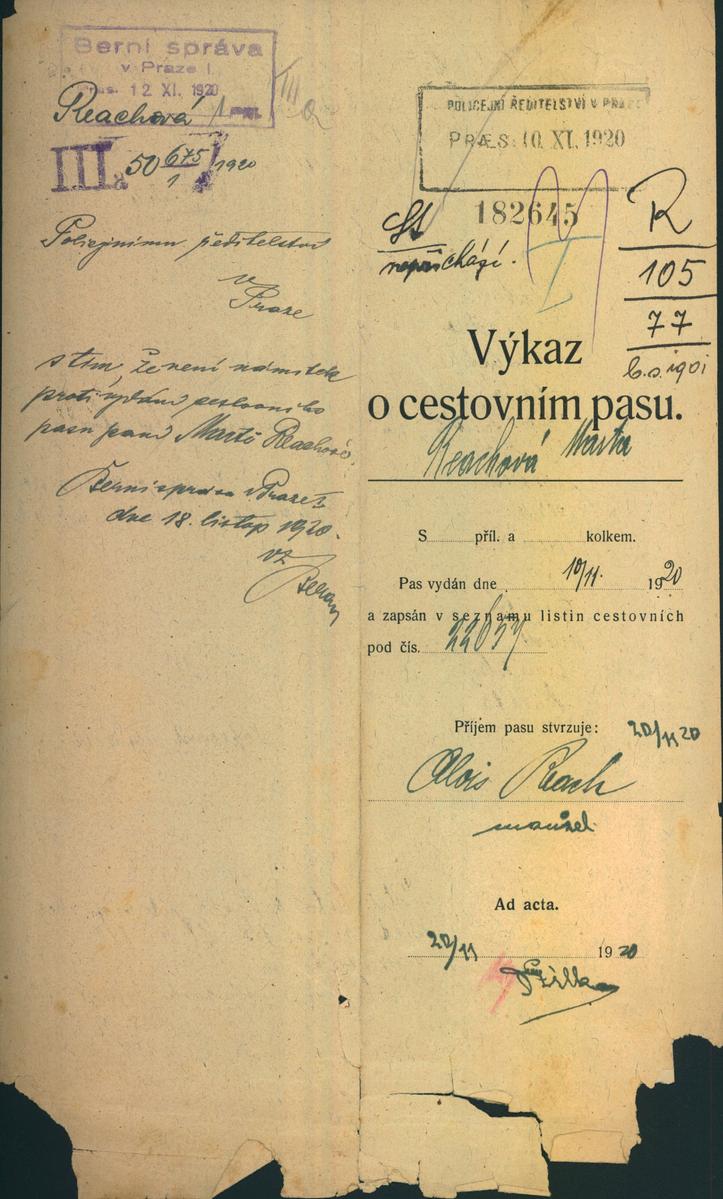 Berní správa
v Praze I.
Præs. 12 XI. 1920
Reachová
III a
III.a 50 675/1 1920
Policejnímu ředitelství
v
Praze
s tím, že není námitek
proti vydání cestovního
pasu paní Martě Reachové.
Berní správa v Praze I.
dne 18. listop 1920.
vz
POLICEJNÍ ŘEDITELSTVÍ V PRAZE
PRÆS: 10. XI. 1920
182645
nepřichází.
R
105
77
1901
Výkaz
o cestovním pasu.
Reachová Marta
S příl. a kolkem.
Pas vydán dne 10/11. 1920
a zapsán v seznamu listin cestovních
pod čís. 22657.
Příjem pasu stvrzuje: 20/11 20
Alois Reach
manžel
Ad acta.
20/11 1920